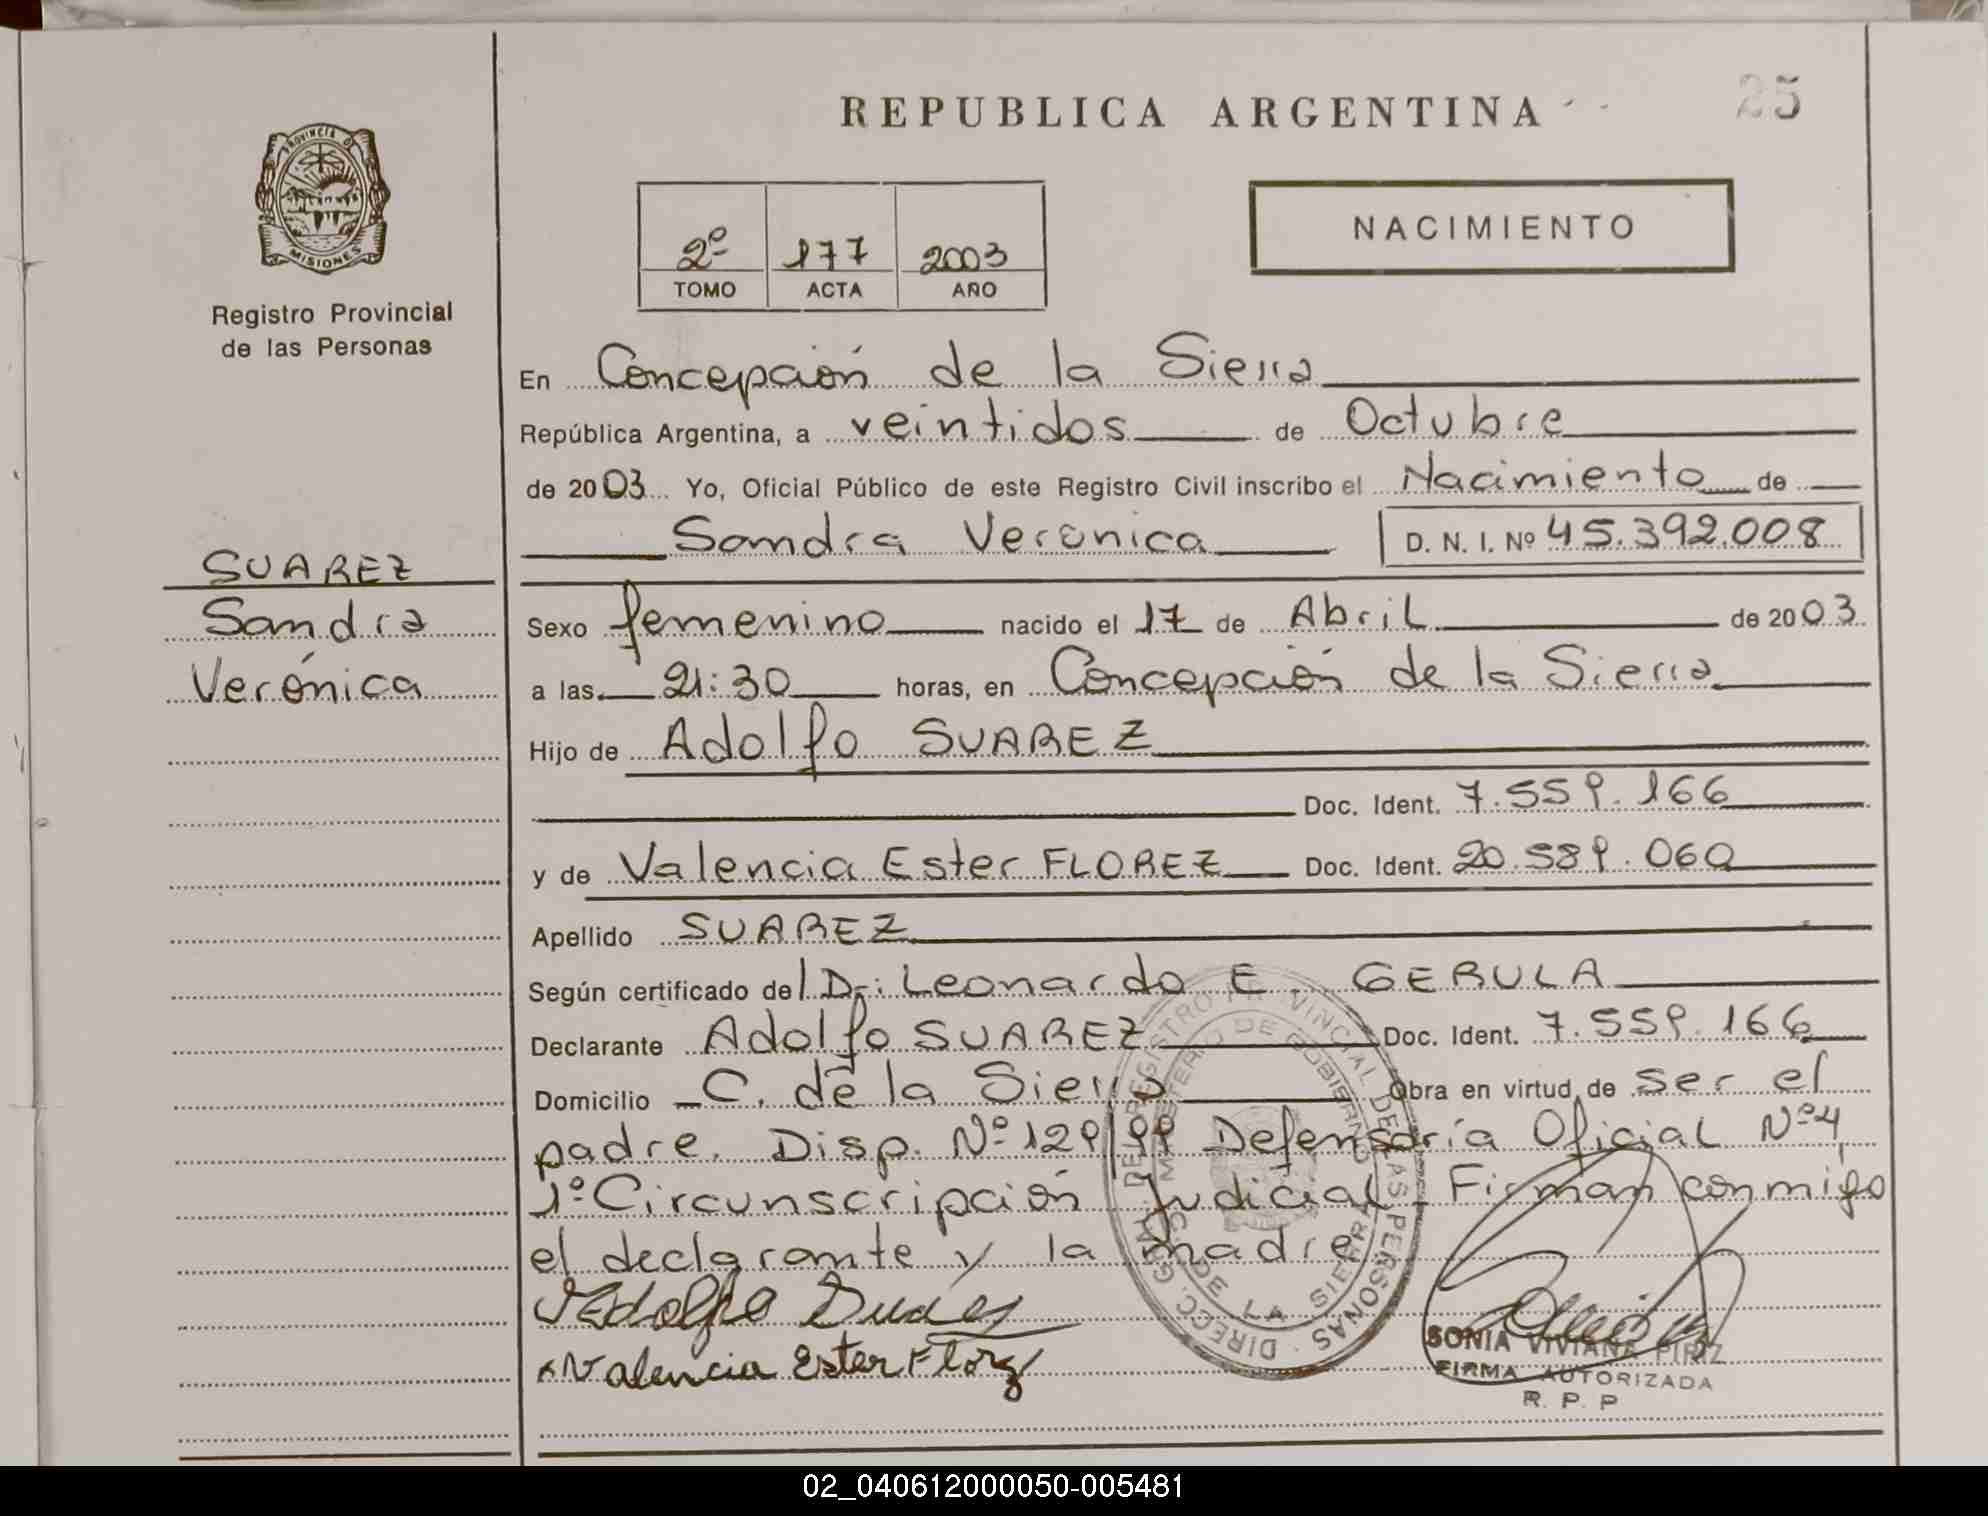 REPUBLICA ARGENTINA
25
PROVINCIA D
MISIONES
Registro Provincial
de las Personas
2º 177 2003
TOMO ACTA AÑO
NACIMIENTO
En Concepción de la Sierra
República Argentina, a veintidos de Octubre
de 2003 Yo, Oficial Público de este Registro Civil inscribo el Nacimiento de
Sandra Verónica D. N. I. Nº 45.392.008
SUAREZ
Sandra
Verónica
Sexo femenino nacido el 17 de Abril de 2003
a las 21:30 horas, en Concepción de la Sierra
Hijo de Adolfo SUAREZ
Doc. Ident. 7.559.166
y de Valencia Ester FLOREZ Doc. Ident. 20.589.060
Apellido SUAREZ
Según certificado del Dr: Leonardo E. GERULA
Declarante Adolfo SUAREZ Doc. Ident. 7.559.166
Domicilio C. de la Sierra Obra en virtud de ser el
padre. Disp. Nº 129/99 Defensoría Oficial Nº4,
1º Circunscripción Judicial. Firman conmigo
el declarante y la madre
Adolfo Suares
Valencia Ester Florez
DIREC. GRAL. DEL REGISTRO PROVINCIAL DE LAS PERSONAS
MINISTERIO DE GOBIERNO
C. DE LA SIERRA
SONIA VIVIANA PIRIZ
FIRMA AUTORIZADA
R. P. P
02_040612000050-005481